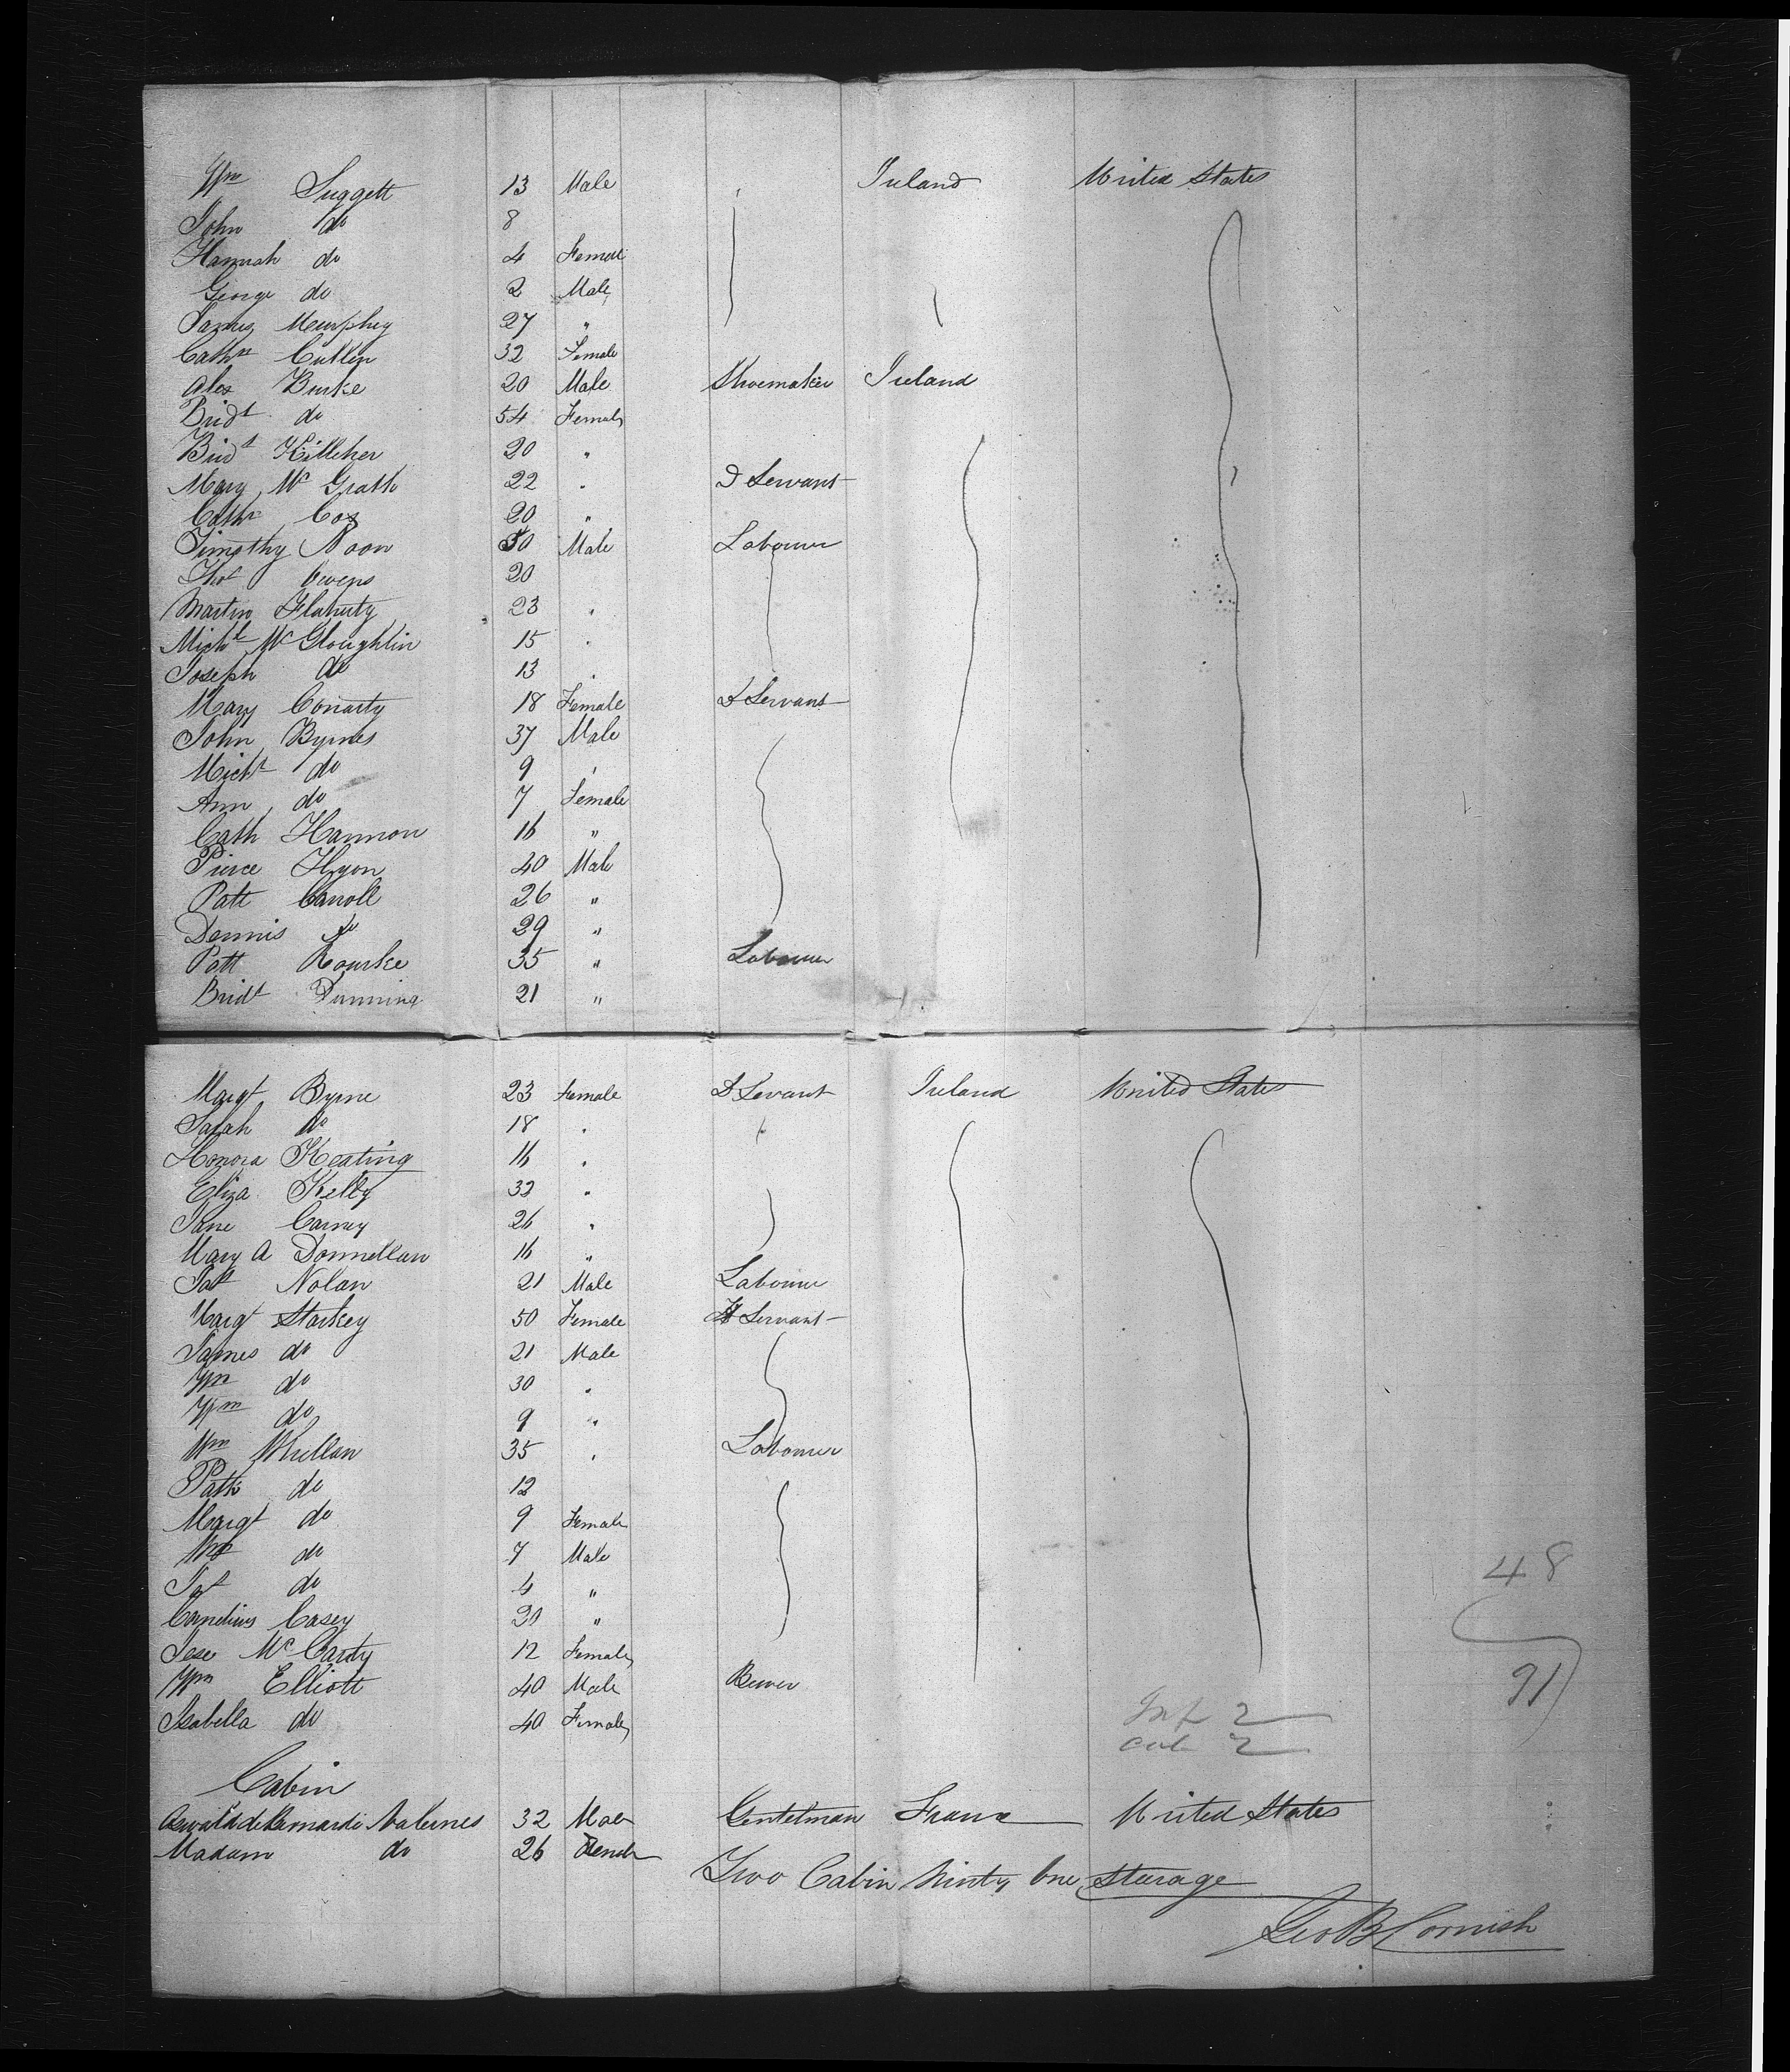 Wm Suggett 13 Male Ireland United States
John do 8
Hannah do 4 Female
George do 2 Male
James Murphey 27 "
Cathn Cullen 32 Female
Alex Burke 20 Male Shoemaker Ireland
Bridt do 54 Female
Bridt Killeher 20 "
Mary McGrath 22 " D Servant
Cathn Cox 20 "
Timothy Noon 30 Male Labourer
Thos Owens 20
Martin Flaherty 23 "
Michl McGloughlin 15 "
Joseph do 13 "
Mary Conarty 18 Female D Servant
John Byrnes 37 Male
Michl do 9 "
Ann do 7 Female
Cath Hannon 16 "
Pierce Hyon 40 Male
Patt Carroll 26 "
Dennis do 29 "
Patt Rourke 35 " Labourer
Bridt Dunning 21 "
Margt Byrne 23 Female D Servant Ireland United States
Sarah do 18 "
Honora Keating 16 "
Eliza Kelly 32 "
Jane Carney 26 "
Mary A Donnellan 16 "
Pat Nolan 21 Male Labourer
Margt Starkey 50 Female Servant
James do 21 Male
Wm do 30 "
Wm do 9 "
Wm Whellan 35 " Labourer
Patk do 12
Margt do 9 Female
do 7 Male
do 4 "
Cornelius Casey 20 "
McCarty 12 Female
Wm Elliott 40 Male
Isabella do 40 Female
48
91
Inf 2
Cab 2
Cabin
32 Male Gentelman France United States
Madam do 26
Two Cabin Ninty One Sturage
Geo B Cornish